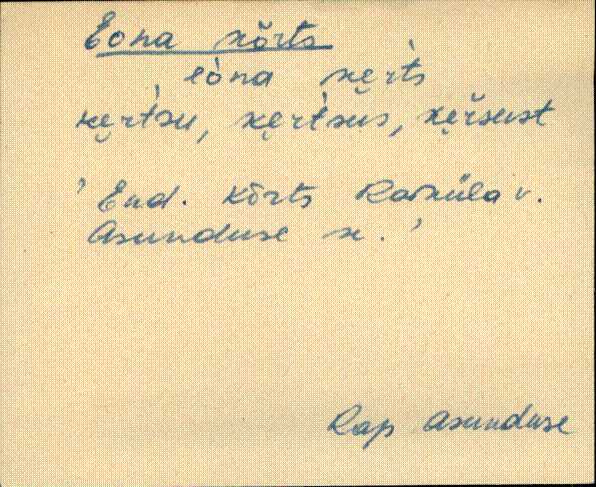 Eona kõrts
eòna ke̮r̀ts
ke̮rtsu, ke̮rtsus, ke̮r̆sust
'End. kõrts Raküla v.
Asunduse k.'
Rap Asunduse